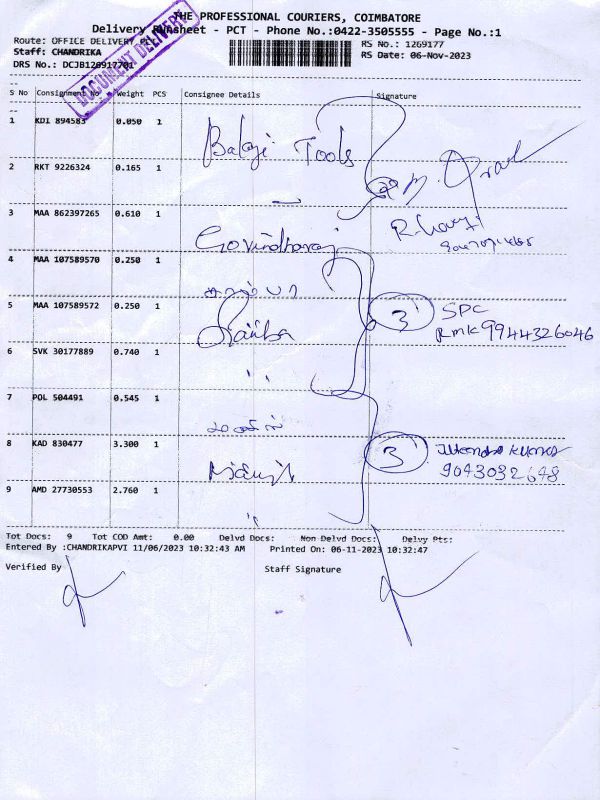 THE PROFESSIONAL COURIERS, COIMBATORE
Delivery Runsheet - PCT - Phone No.:0422-3505555 - Page No.:1
Route: OFFICE DELIVERY PCT
RS No.: 1269177
Staff: CHANDRIKA
RS Date: 06-Nov-2023
DRS No.: DCJB120917701
DOCUMENT DELIVERY
S No Consignment No Weight PCS Consignee Details Signature
1 KDI 894583 0.050 1 Balaji Tools
2 RKT 9226324 0.165 1
3 MAA 862397265 0.610 1 Govindharaj
4 MAA 107589570 0.250 1
5 MAA 107589572 0.250 1 3 SPC
RMK 9944326046
6 SVK 30177889 0.740 1 "
7 POL 504491 0.545 1
8 KAD 830477 3.300 1 3
9043032648
9 AMD 27730553 2.760 1 "
Tot Docs: 9 Tot COD Amt: 0.00 Delvd Docs: Non Delvd Docs: Delvy Pts:
Entered By :CHANDRIKAPVI 11/06/2023 10:32:43 AM Printed On: 06-11-2023 10:32:47
Verified By Staff Signature